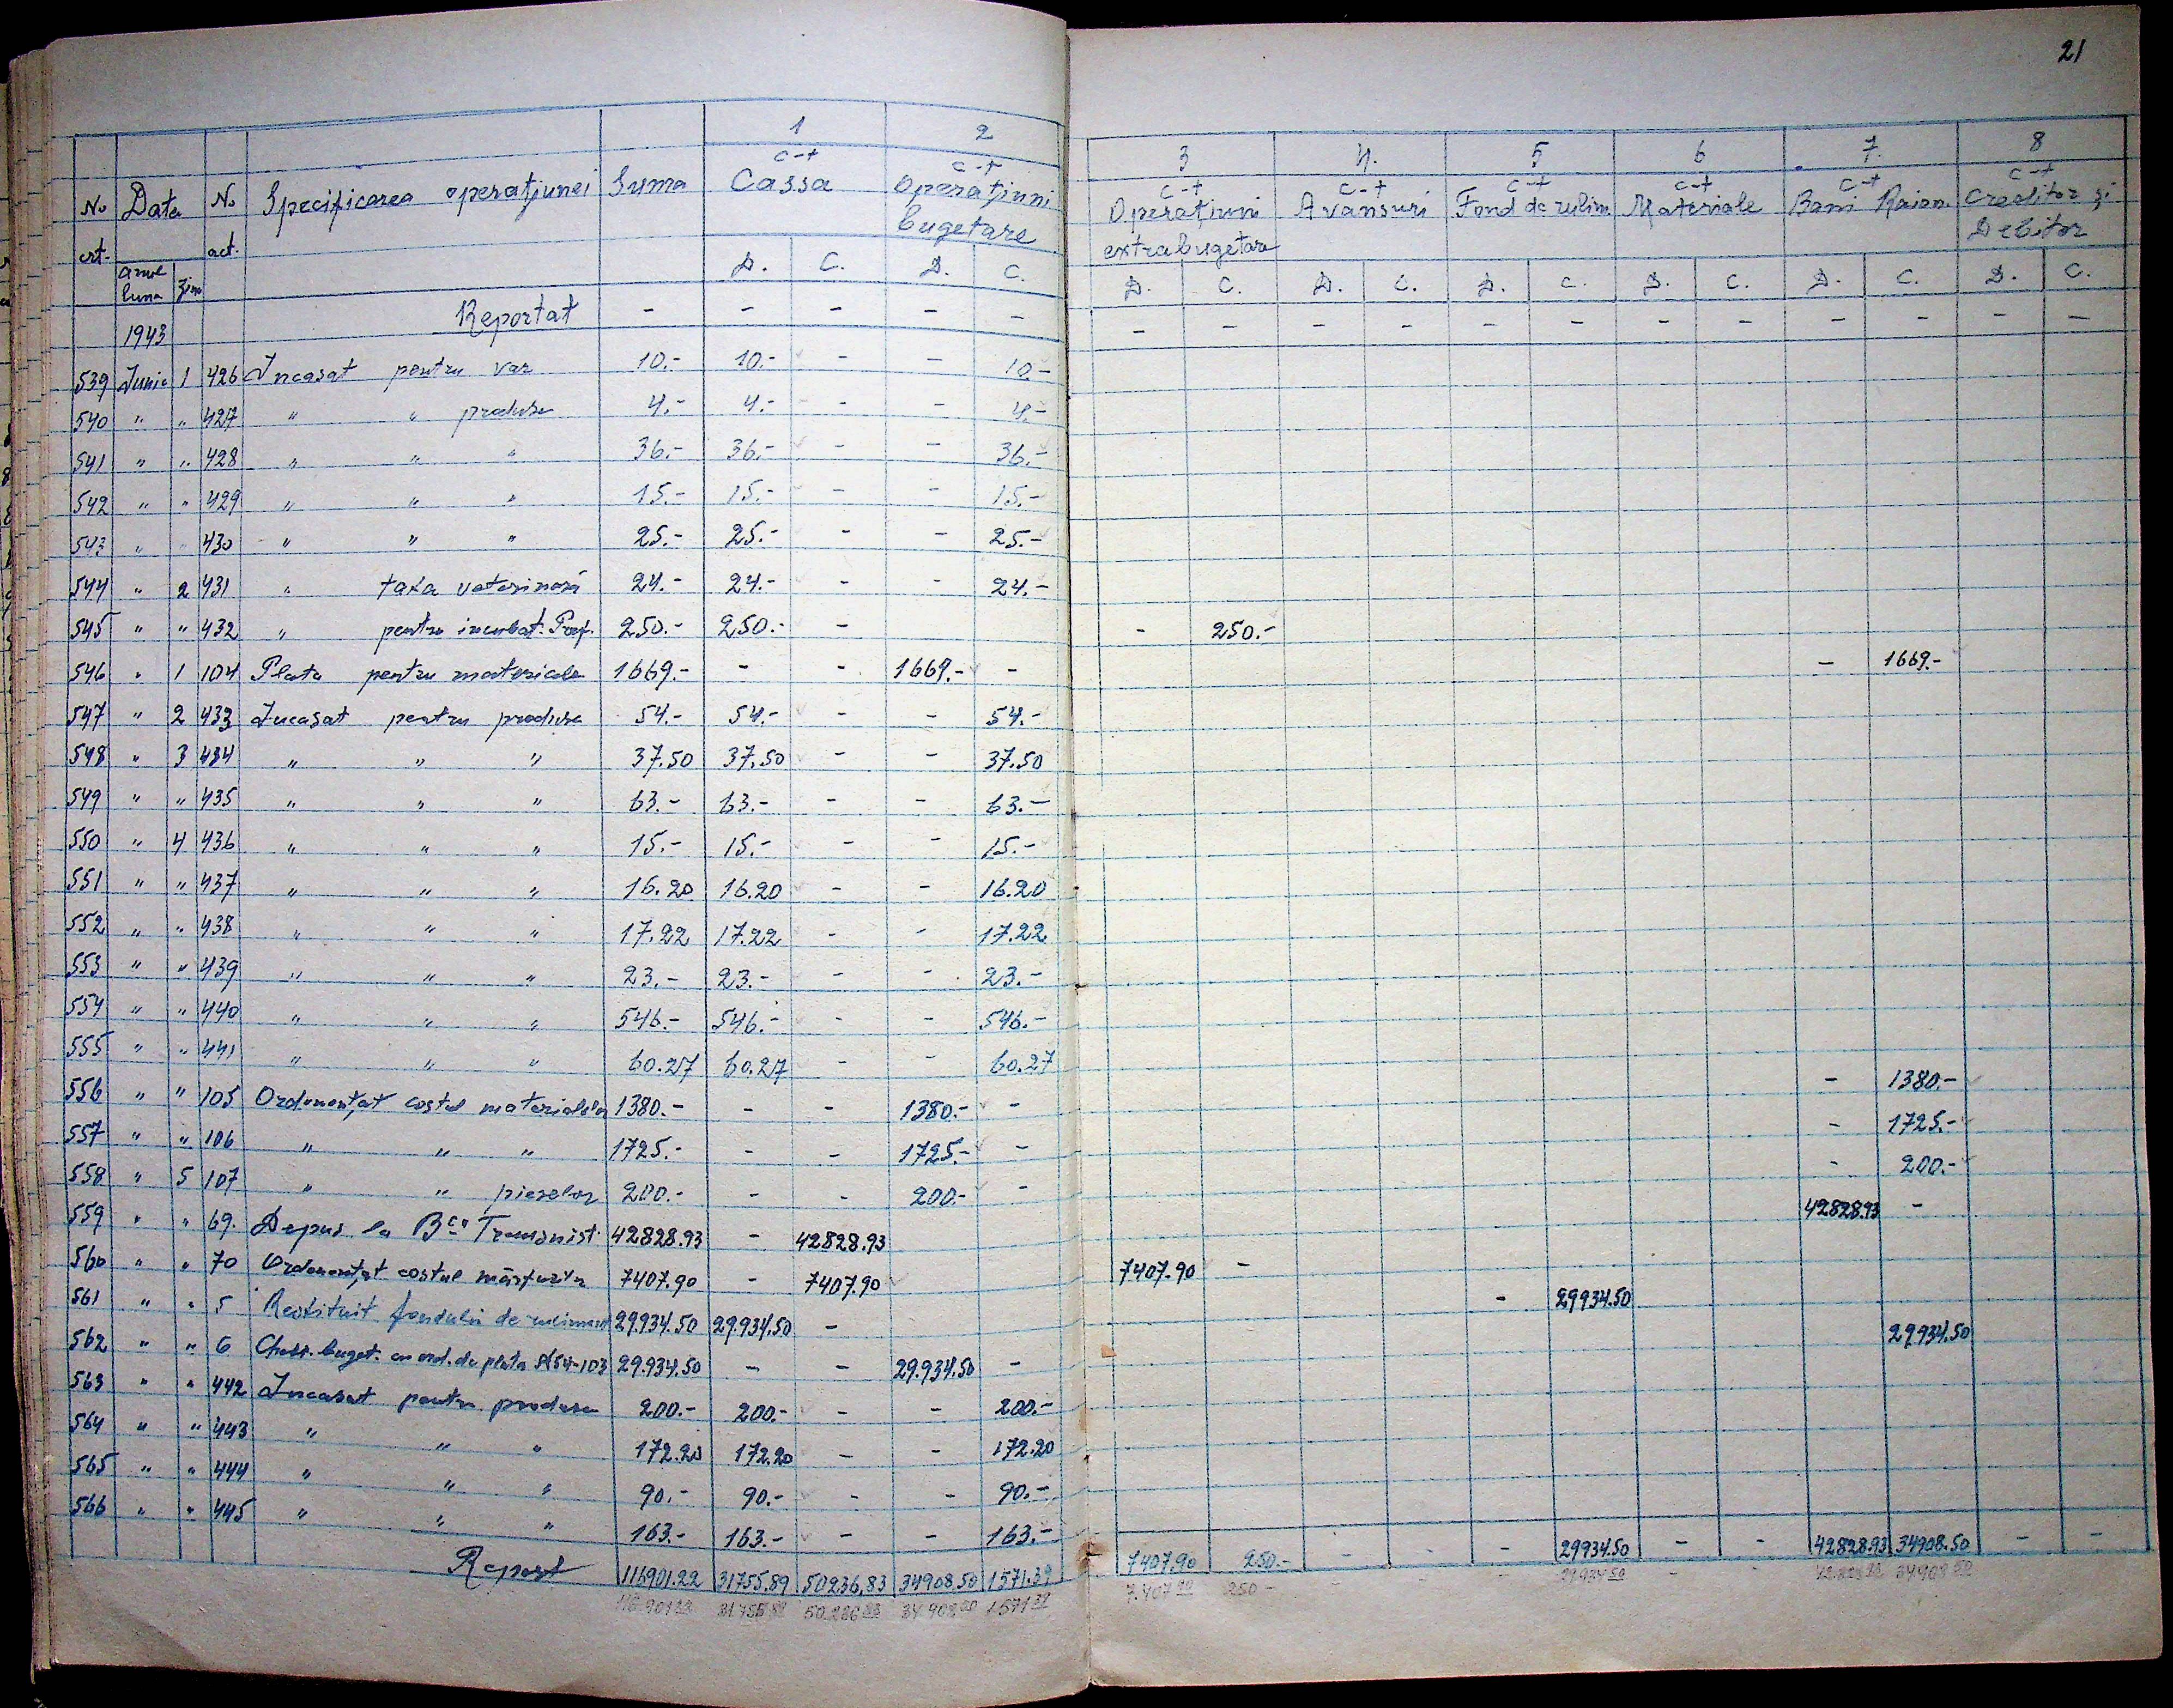 21
1 2 3 4. 5 6 7. 8
No crt. Data anul luna ziua No act. Specificarea operațiunei Suma c-t Cassa c-t Operațiuni bugetare c-t Operațiuni extrabugetare c-t Avansuri c-t Fond de rulim c-t Materiale c-t Bani Raion. c-t Creditor și Debitor
D. C. D. C. D. C. D. C. D. C. D. C. D. C. D. C.
1943 Reportat - - - - - - - - - - - - - - - - -
539 Iunie 1 426 Incasat pentru var 10.- 10.- - - 10.-
540 " " 427 " " produse 4.- 4.- - - 4.-
541 " " 428 " " " 36.- 36.- - - 36.-
542 " " 429 " " " 15.- 15.- - - 15.-
543 " " 430 " " " 25.- 25.- - - 25.-
544 " 2 431 " taxa veterinară 24.- 24.- - - 24.-
545 " " 432 " pentru incubat. Pref. 250.- 250.- - - 250.-
546 " 1 104 Plata pentru materiale 1669.- - - 1669.- - - 1669.-
547 " 2 433 Incasat pentru produse 54.- 54.- - - 54.-
548 " 3 434 " " " 37.50 37.50 - - 37.50
549 " " 435 " " " 63.- 63.- - - 63.-
550 " 4 436 " " " 15.- 15.- - - 15.-
551 " " 437 " " " 16.20 16.20 - - 16.20
552 " " 438 " " " 17.22 17.22 - - 17.22
553 " " 439 " " " 23.- 23.- - - 23.-
554 " " 440 " " " 546.- 546.- - - 546.-
555 " " 441 " " " 60.27 60.27 - - 60.27
556 " " 105 Ordonanțat costul materialelor 1380.- - - 1380.- - - 1380.-
557 " " 106 " " " 1725.- - - 1725.- - - 1725.-
558 " 5 107 " " pieselor 200.- - - 200.- - - 200.-
559 " " 69. Depus la Bca Transnist. 42828.93 - 42828.93 42828.93 -
560 " " 70 Ordonanțat costul 7407.90 - 7407.90 7407.90 -
561 " " 5 Restituit fondului de rulment 29934.50 29.934.50 - - 29934.50
562 " " 6 Chelt. buget. cu ord. de plata 54-103 29.934.50 - - 29.934.50 - 29934.50
563 " " 442 Incasat pentru produse 200.- 200.- - - 200.-
564 " " 443 " " " 172.20 172.20 - - 172.20
565 " " 444 " " " 90.- 90.- - - 90.-
566 " " 445 " " " 163.- 163.- - - 163.-
Report 116901.22 31755.89 50236,83 34908.50 1571.39 7407.90 250.- - - - 29934.50 - - 42828.93 34908.50 - -
116.901 22 31.755 89 50.236 83 34.908 50 1.571 39 7.407 90 250 - - - - 29.934 50 - - 42.828 93 34908 50